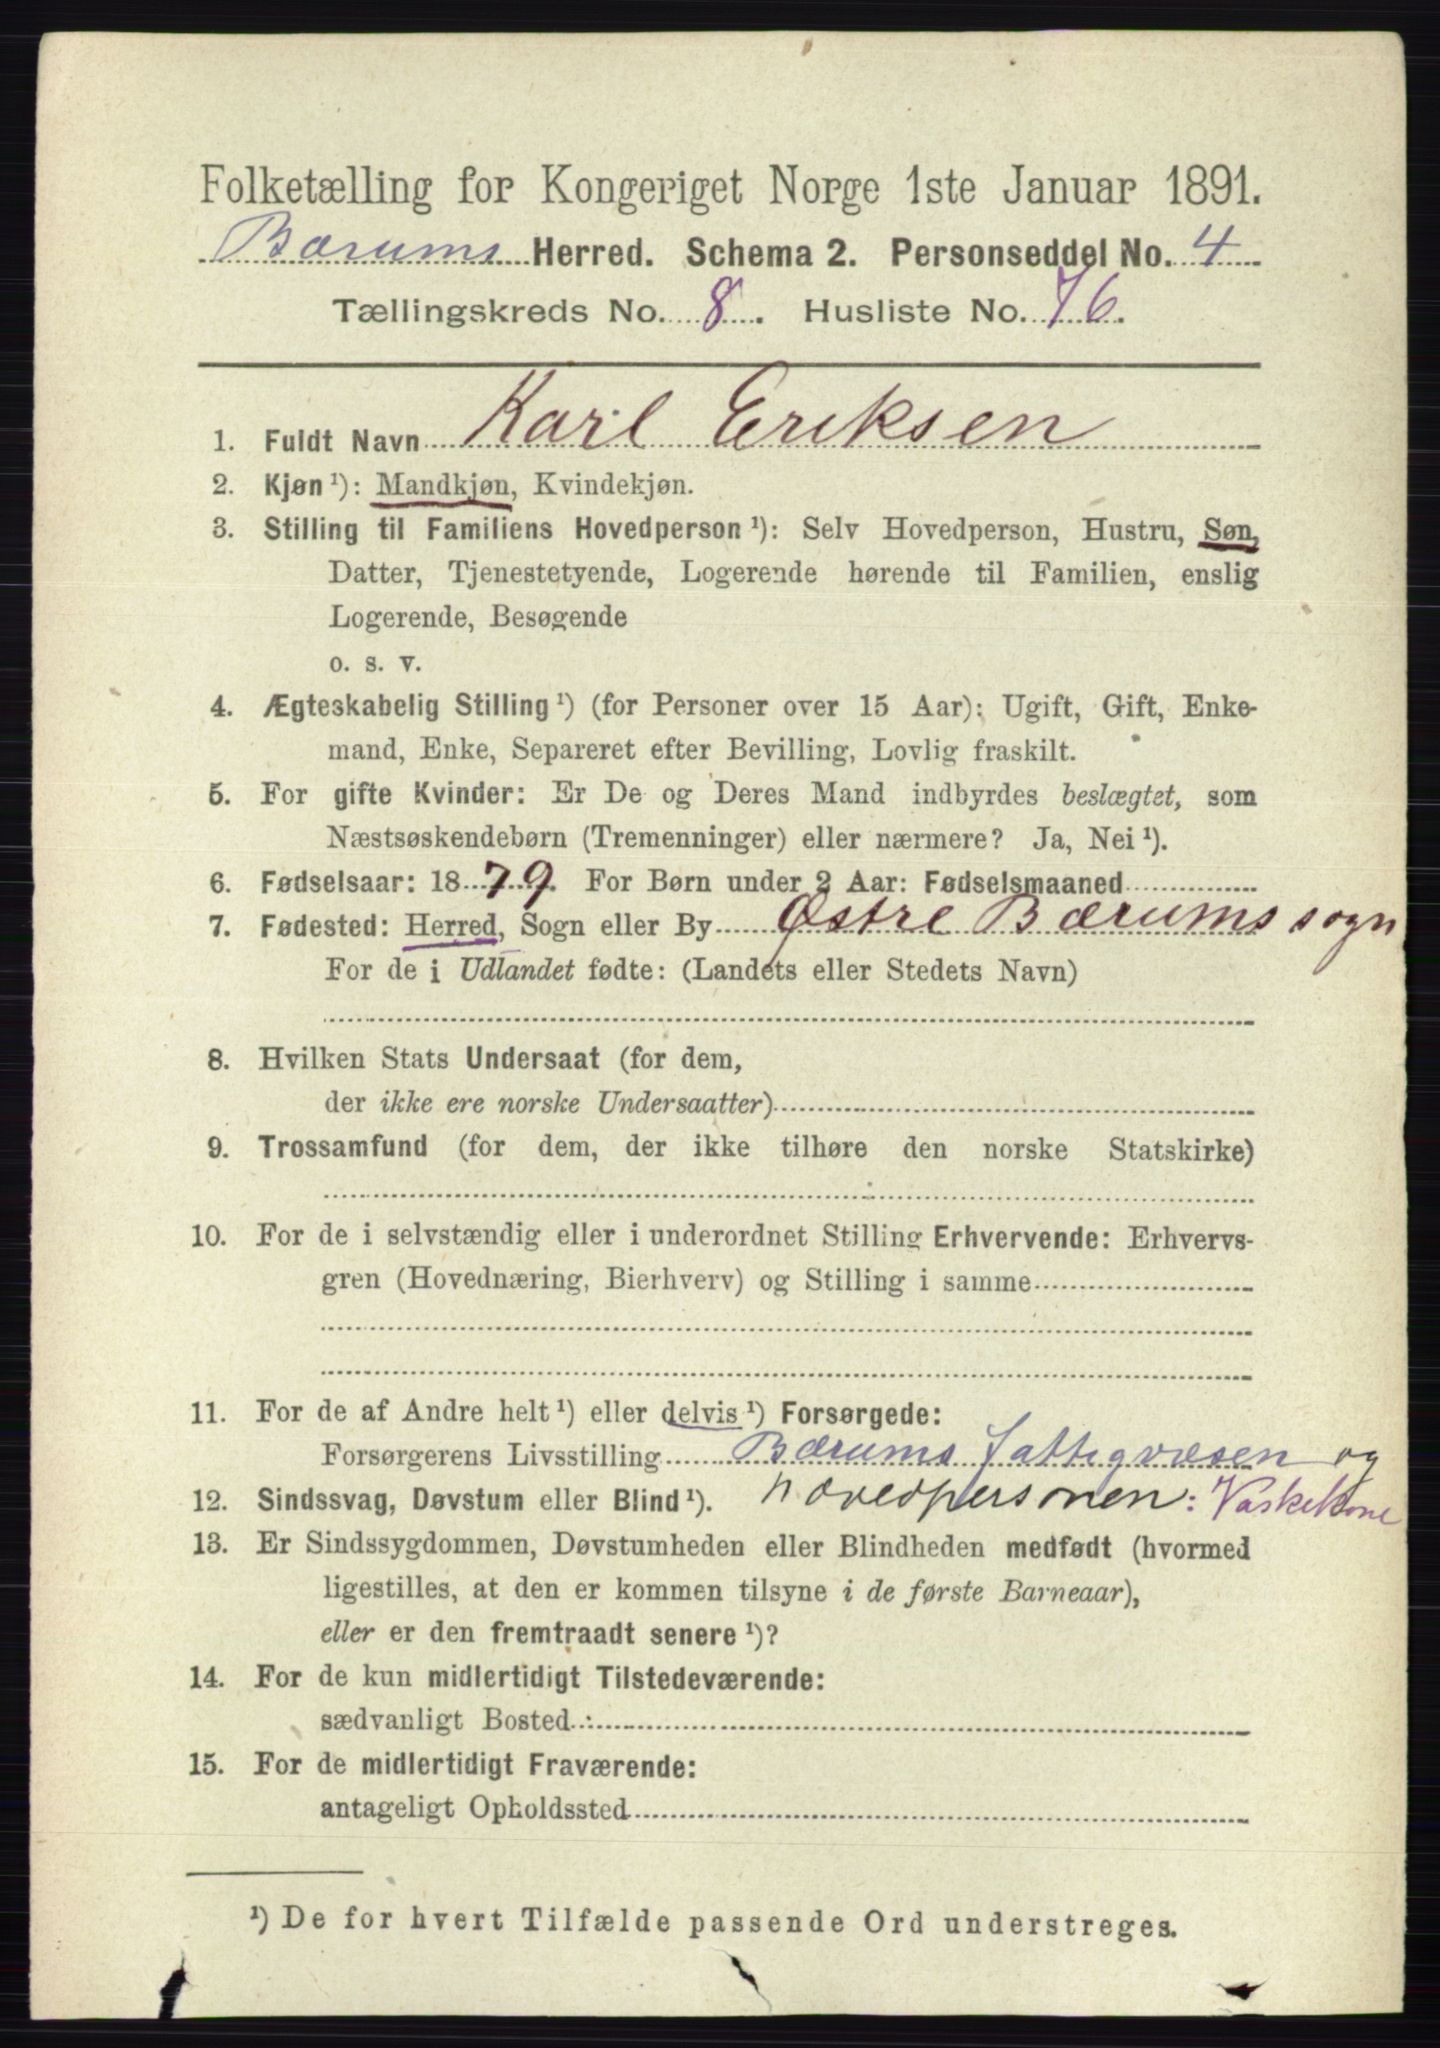 Folketælling for Kongeriget Norge 1ste Januar 1891.
Bærums Herred. Schema 2. Personseddel No. 4
Tællingskreds No. 8. Husliste No. 76.
1. Fuldt Navn Karl Eriksen
2. Kjøn ¹): Mandkjøn, Kvindekjøn.
3. Stilling til Familiens Hovedperson ¹): Selv Hovedperson, Hustru, Søn,
Datter, Tjenestetyende, Logerende hørende til Familien, enslig
Logerende, Besøgende
o. s. v.
4. Ægteskabelig Stilling ¹) (for Personer over 15 Aar): Ugift, Gift, Enke-
mand, Enke, Separeret efter Bevilling, Lovlig fraskilt.
5. For gifte Kvinder: Er De og Deres Mand indbyrdes beslægtet, som
Næstsøskendebørn (Tremenninger) eller nærmere? Ja, Nei ¹).
6. Fødselsaar: 1879. For Børn under 2 Aar: Fødselsmaaned
7. Fødested: Herred, Sogn eller By Østre Bærums sogn
For de i Udlandet fødte: (Landets eller Stedets Navn)
8. Hvilken Stats Undersaat (for dem,
der ikke ere norske Undersaatter)
9. Trossamfund (for dem, der ikke tilhøre den norske Statskirke)
10. For de i selvstændig eller i underordnet Stilling Erhvervende: Erhvervs-
gren (Hovednæring, Bierhverv) og Stilling i samme
11. For de af Andre helt ¹) eller delvis ¹) Forsørgede:
Forsørgerens Livsstilling Bærums fattigvæsen og
12. Sindssvag, Døvstum eller Blind ¹). hovedpersonen: Vaskekone
13. Er Sindssygdommen, Døvstumheden eller Blindheden medfødt (hvormed
ligestilles, at den er kommen tilsyne i de første Barneaar),
eller er den fremtraadt senere ¹)?
14. For de kun midlertidigt Tilstedeværende:
sædvanligt Bosted
15. For de midlertidigt Fraværende:
antageligt Opholdssted
¹) De for hvert Tilfælde passende Ord understreges.